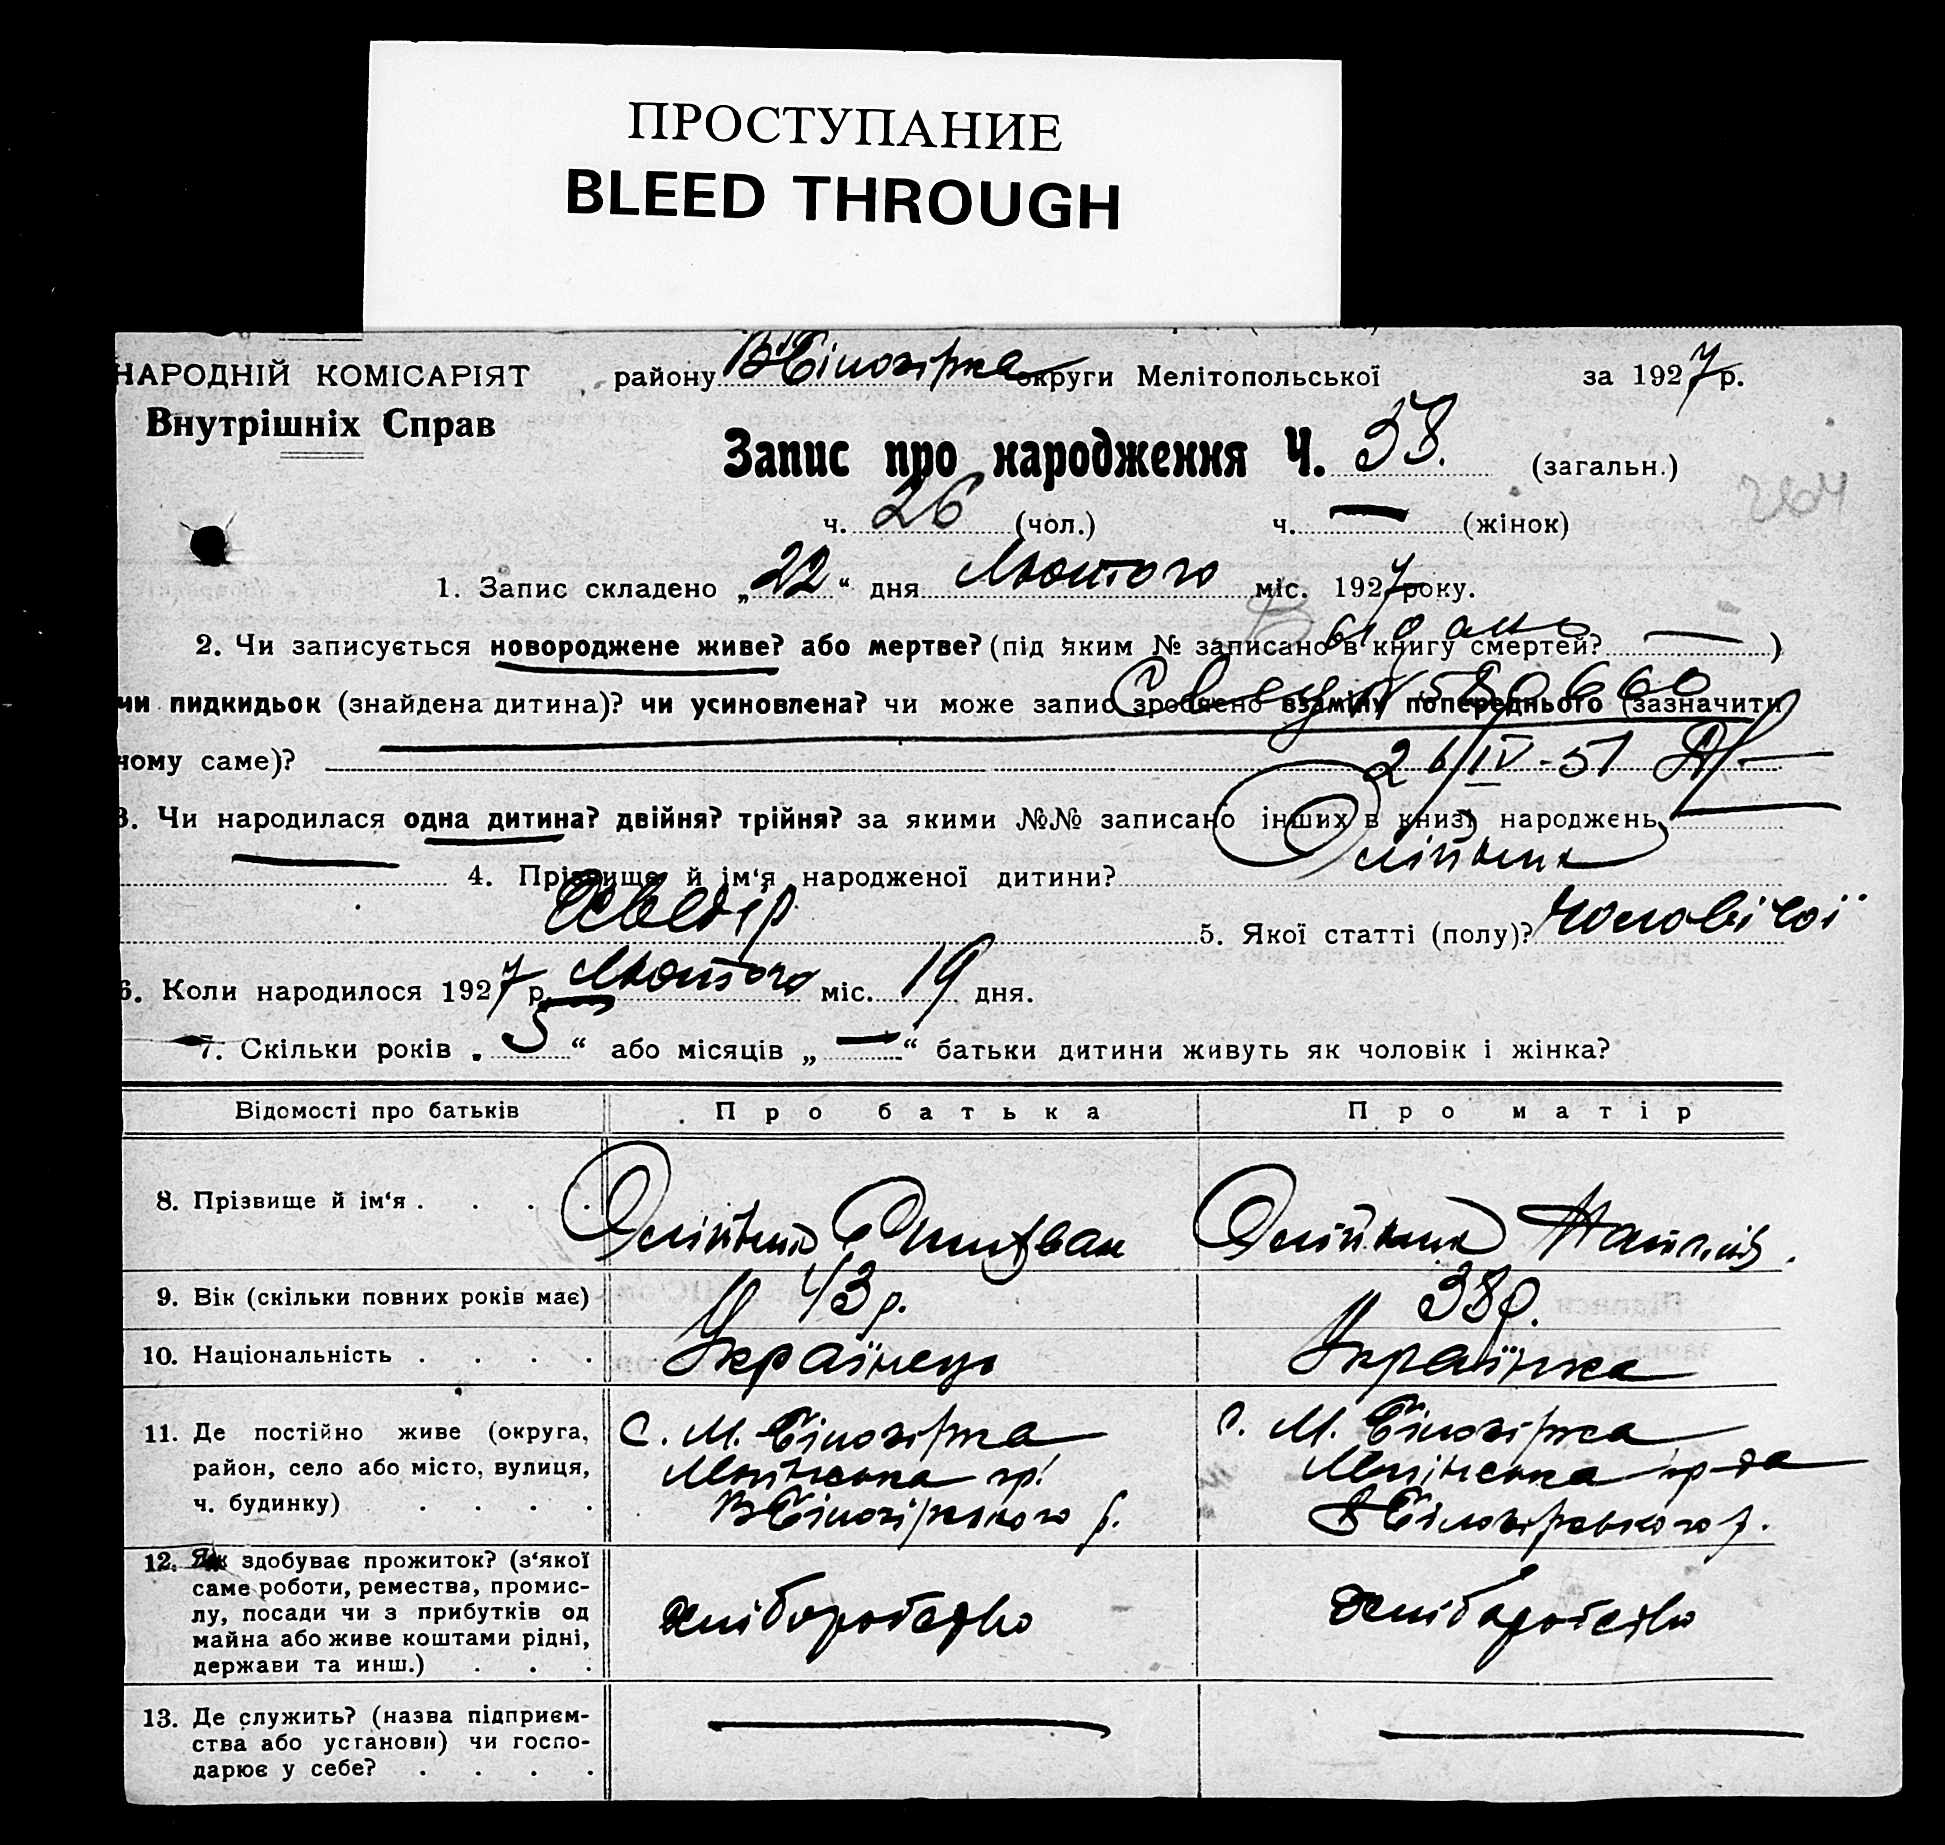 ПРОСТУПАНИЕ
BLEED THROUGH
НАРОДНІЙ КОМІСАРІЯТ району ВБілозірка округи Мелітопольської за 1927 р.
Внутрішніх Справ
Запис про народження Ч. 38. (загальн.)
264
ч. 26 (чол.) ч. — (жінок)
1. Запис складено „22“ дня Лютого міс. 1927 року.
2. Чи записується новороджене живе? або мертве? (під яким № записано в книгу смертей? — )
видано
чи пидкидьок (знайдена дитина)? чи усиновлена? чи може запис зроблено взамін попереднього (зазначити
чому саме)?
26/IV-51
3. Чи народилася одна дитина? двійня? трійня? за якими №№ записано інших в книзі народжень
— 4. Прізвище й ім'я народженої дитини? Олійник
5. Якої статті (полу)? Чоловічої
6. Коли народилося 1927 р. Лютого міс. 19 дня.
7. Скільки років „5“ або місяців „—“ батьки дитини живуть як чоловік і жінка?
Відомості про батьків Про батька Про матір
8. Прізвище й ім'я . . . . Олійник Олійник
9. Вік (скільки повних років має) 43 р. 38 р.
10. Національність . . . . Українець Українка
11. Де постійно живе (округа, с. М. Білозірка с. М. Білозірка
район, село або місто, вулиця,
ч. будинку) . . . . ВБілозірського р. ВБілозірського р.
12. Як здобуває прожиток? (з'якої
саме роботи, ремества, промис-
лу, посади чи з прибутків од хліборобство хліборобство
майна або живе коштами рідні,
держави та инш.) . . .
13. Де служить? (назва підприєм-
ства або установи) чи госпо- — —
дарює у себе? . . . .